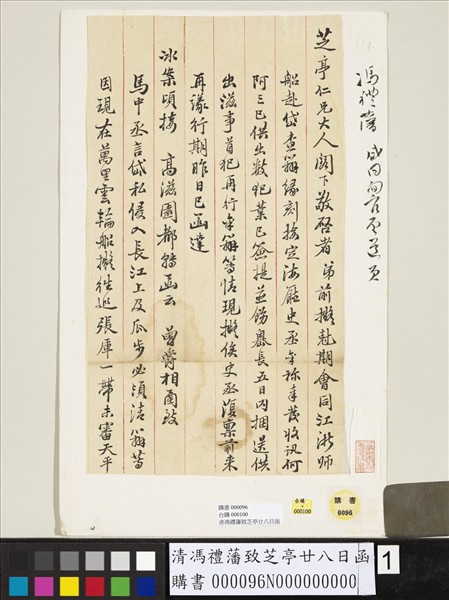 馮禮藩
芝亭仁兄大人閣下敬啓者弟前擬赴期會同江浙師
船赴岱查辦緣刻接定海廳史丞年稱奉茂收訊何
阿三已供出數犯業已簽提並飭縣長五日內捆送供
出滋事首犯再行安辦等情現擬俟史丞復稟前來
再議行期昨日已函達
冰案頃接 高滋園都轉函云 曾爵相函致
馬中丞言岱私侵入長江上及瓜步必須法辦等
因現在萬里雲輪船擬往巡張厙一帶未審天平
購書 000096
台購 000100
清馮禮藩致芝亭廿八日函
台購
000100
購書
0096
清馮禮藩致芝亭廿八日函
購書 000096N000000000
1